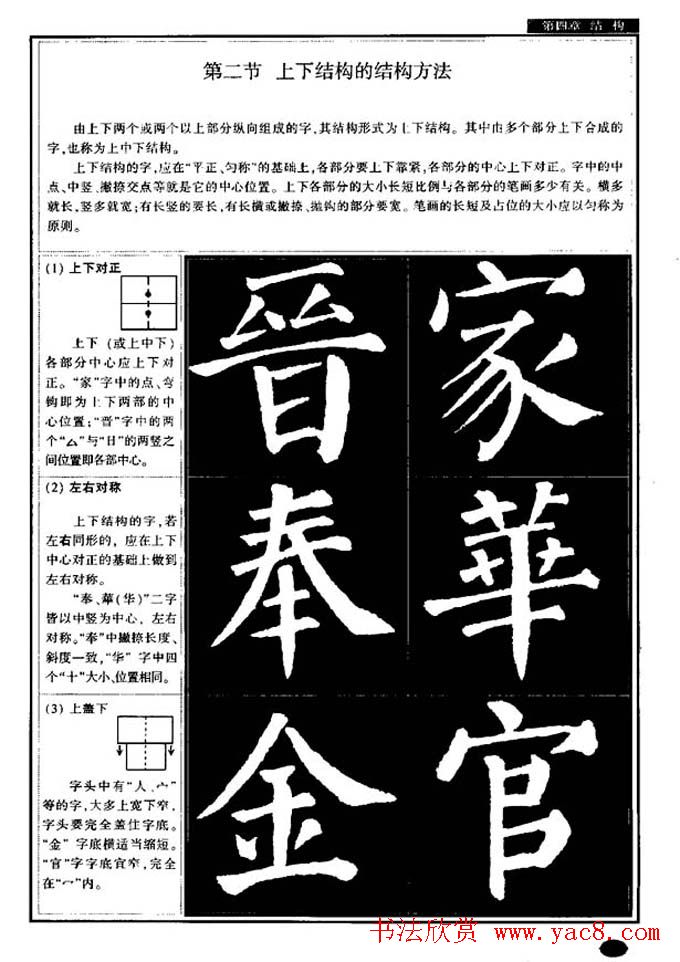 第四章 结 构
第二节 上下结构的结构方法
由上下两个或两个以上部分纵向组成的字,其结构形式为上下结构。其中由多个部分上下合成的
字,也称为上中下结构。
上下结构的字,应在“平正、匀称”的基础上,各部分要上下靠紧,各部分的中心上下对正。字中的中
点、中竖、撇捺交点等就是它的中心位置。上下各部分的大小长短比例与各部分的笔画多少有关。横多
就长,竖多就宽;有长竖的要长,有长横或撇捺、抛钩的部分要宽。笔画的长短及占位的大小应以匀称为
原则。
(1) 上下对正
上下 (或上中下)
各部分中心应上下对
正。“家”字中的点、弯
钩即为上下两部的中
心位置;“晋”字中的两
个“厶”与“日”的两竖之
间位置即各部中心。
家
晉
(2) 左右对称
上下结构的字,若
左右同形的, 应在上下
中心对正的基础上做到
左右对称。
“奉、華(华)”二字
皆以中竖为中心, 左右
对称。“奉”中撇捺长度、
斜度一致,“华” 字中四
个“十”大小、位置相同。
華
奉
(3) 上盖下
字头中有“人、宀”
等的字,大多上宽下窄,
字头要完全盖住字底。
“金” 字底横适当缩短。
“官”字字底宜窄,完全
在“冖”内。
官
金
书法欣赏 www.yac8.com